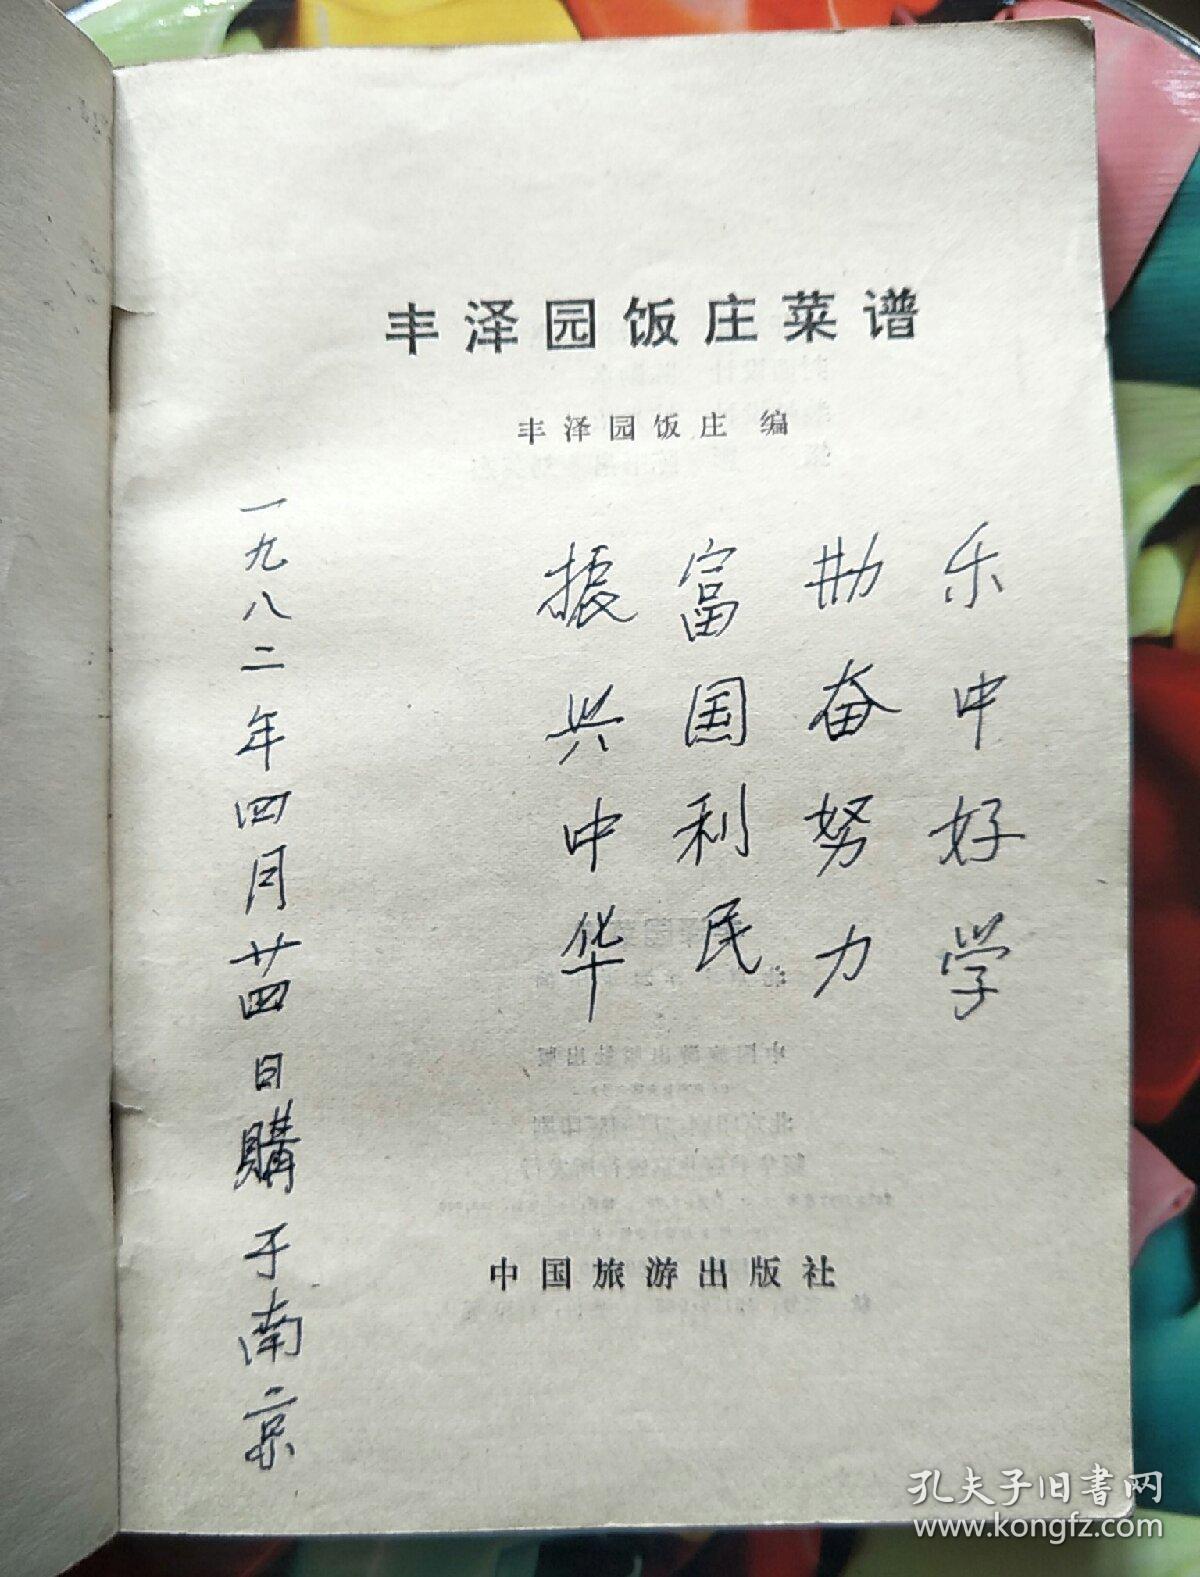 丰泽园饭庄菜谱
丰泽园饭庄 编
乐中好学
勤奋努力
富国利民
振兴中华
一九八二年四月廿四日購于南京
中国旅游出版社
孔夫子旧书网
www.kongfz.com